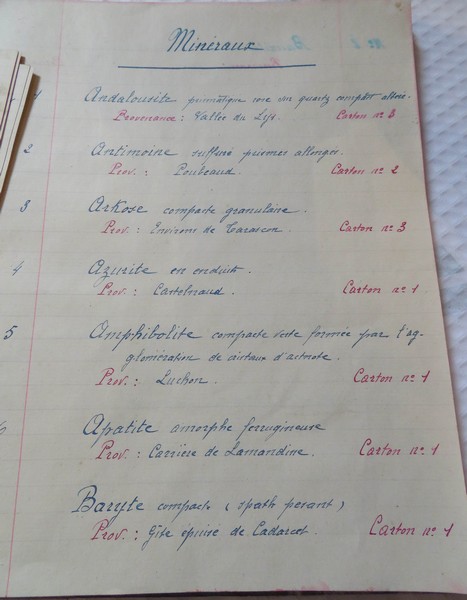 Minéraux
1 Andalousite prismatique rose sur quartz
Provenance : Vallée du Lys. Carton n° 3
2 Antimoine sulfuré prismes allongés.
Prov. : Poubeaud. Carton n° 2
3 Arkose compacte granulaire.
Prov. : Environs de Tarascon. Carton n° 3
4 Azurite en enduit.
Prov. : Castelnaud. Carton n° 1
5 Amphibolite compacte verte formée par l'ag-
glomération de cristaux d'actnote.
Prov. : Luchon. Carton n° 1
6 Apatite amorphe ferrugineuse
Prov. : Carrière de Lamandine. Carton n° 1
Baryte compacte (spath pesant)
Prov. : Gîte épuisé de Cadarcet. Carton n° 1